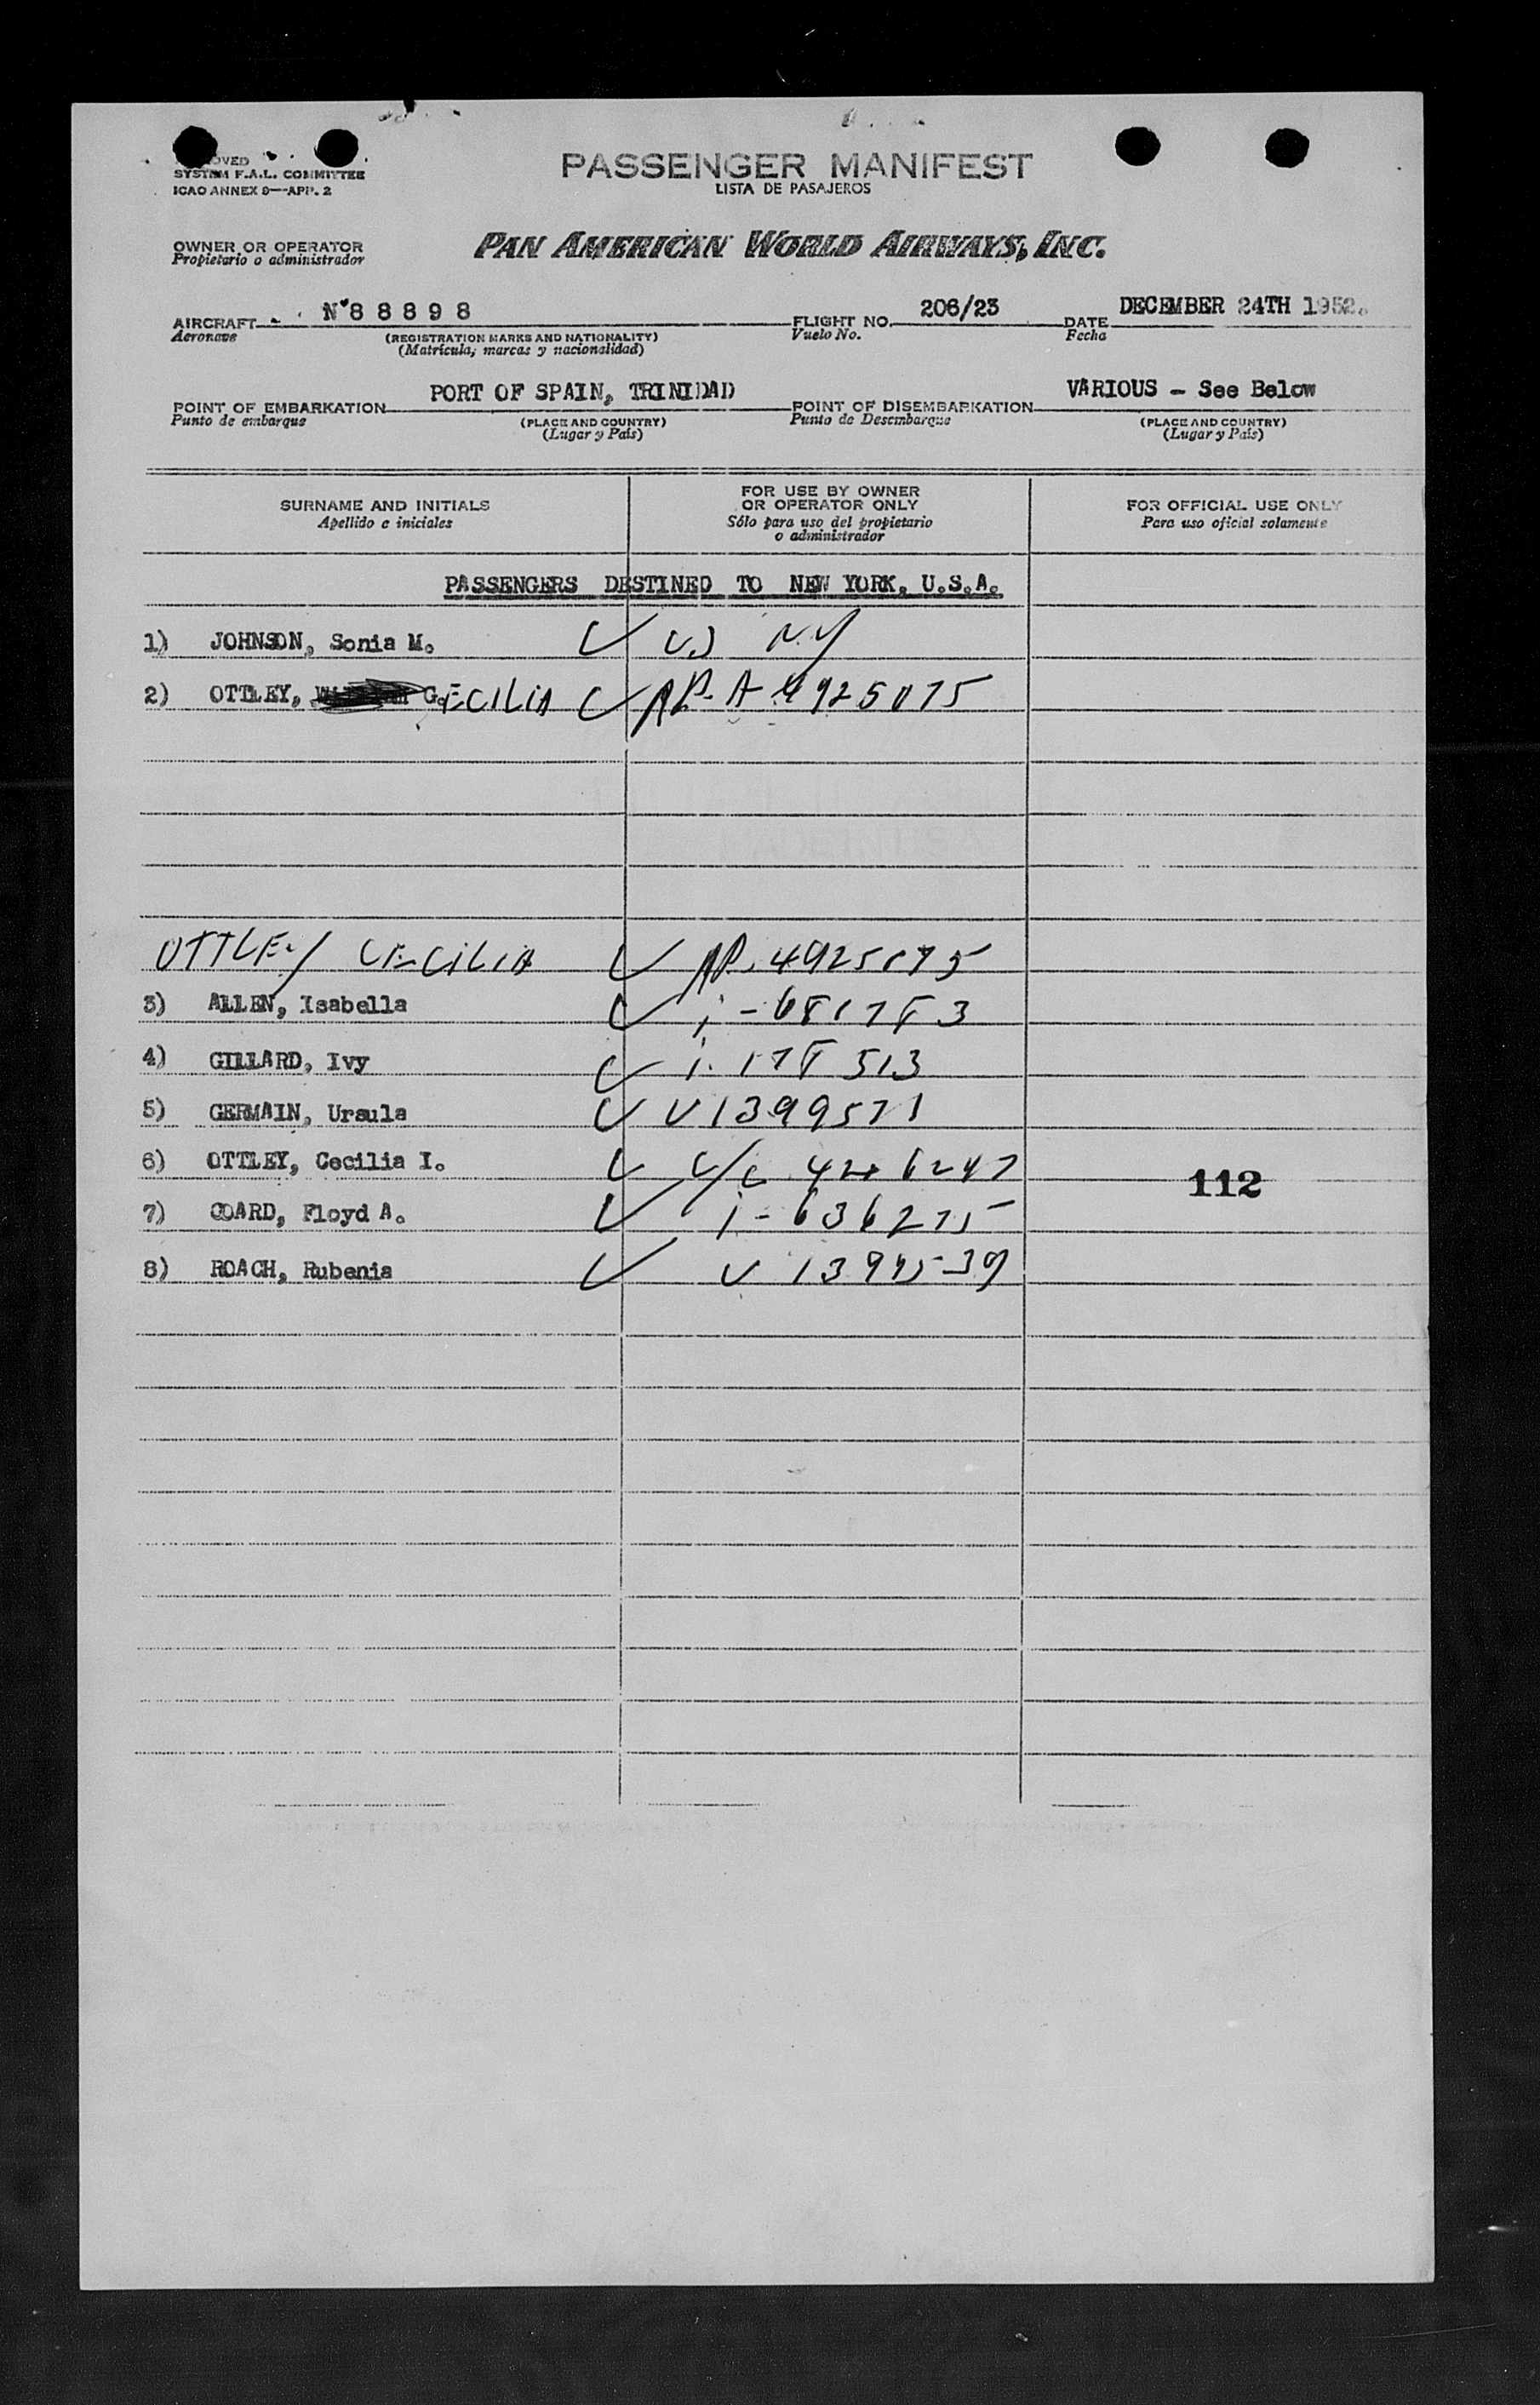 SYSTEM F.A.L. COMMITTEE
ICAO ANNEX 9—APP. 2
PASSENGER MANIFEST
LISTA DE PASAJEROS
OWNER OR OPERATOR
Propietario o administrador
PAN AMERICAN WORLD AIRWAYS, INC.
AIRCRAFT N88898 FLIGHT NO. 206/23 DATE DECEMBER 24TH 1952.
Aeronave (REGISTRATION MARKS AND NATIONALITY) Vuelo No. Fecha
(Matrícula, marcas y nacionalidad)
POINT OF EMBARKATION PORT OF SPAIN, TRINIDAD POINT OF DISEMBARKATION VARIOUS - See Below
Punto de embarque (PLACE AND COUNTRY) Punto de Desembarque (PLACE AND COUNTRY)
(Lugar y País) (Lugar y País)
SURNAME AND INITIALS
Apellido e iniciales
FOR USE BY OWNER
OR OPERATOR ONLY
Sólo para uso del propietario
o administrador
FOR OFFICIAL USE ONLY
Para uso oficial solamente
PASSENGERS DESTINED TO NEW YORK, U.S.A.
1) JOHNSON, Sonia M. US NY
2) OTTLEY, CECILIA AR-A 4925075
OTTLEY CECILIA AR. 4925075
3) ALLEN, Isabella i-681783
4) GILLARD, Ivy i. 178513
5) GERMAIN, Ursula V1399571
6) OTTLEY, Cecilia I. c/c
7) COARD, Floyd A. i-636275
8) ROACH, Rubenia V
112